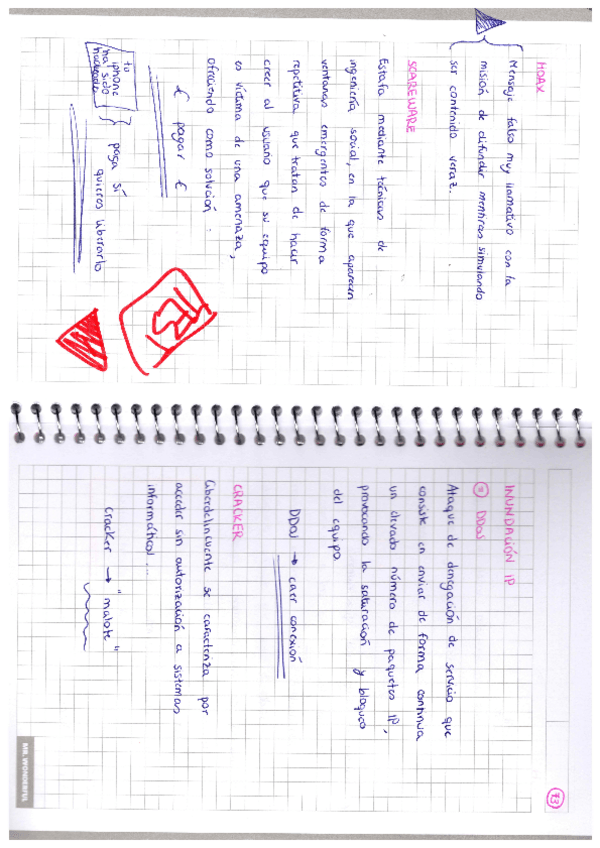 HOAX
Mensaje falso muy llamativo con la
misión de difundir mentiras simulando
ser contenido veraz.
SCAREWARE
Estafa mediante técnicas de
ingeniería social, en la que aparecen
ventanas emergentes de forma
repetitiva que tratan de hacer
creer al usuario que su equipo
es víctima de una amenaza,
ofreciendo como solución :
€ pagar €
tu
iphone
ha sido
hackeado
paga si
quieres liberarlo
73
INUNDACIÓN IP
= DDoS
Ataque de denegación de servicio que
consiste en enviar de forma continua
un elevado número de paquetes IP,
provocando la saturación y bloqueo
del equipo.
DDoS → caer conexión
CRACKER
Ciberdelincuente se caracteriza por
acceder sin autorización a sistemas
informáticos ...
Cracker → "malote"
MR. WONDERFUL